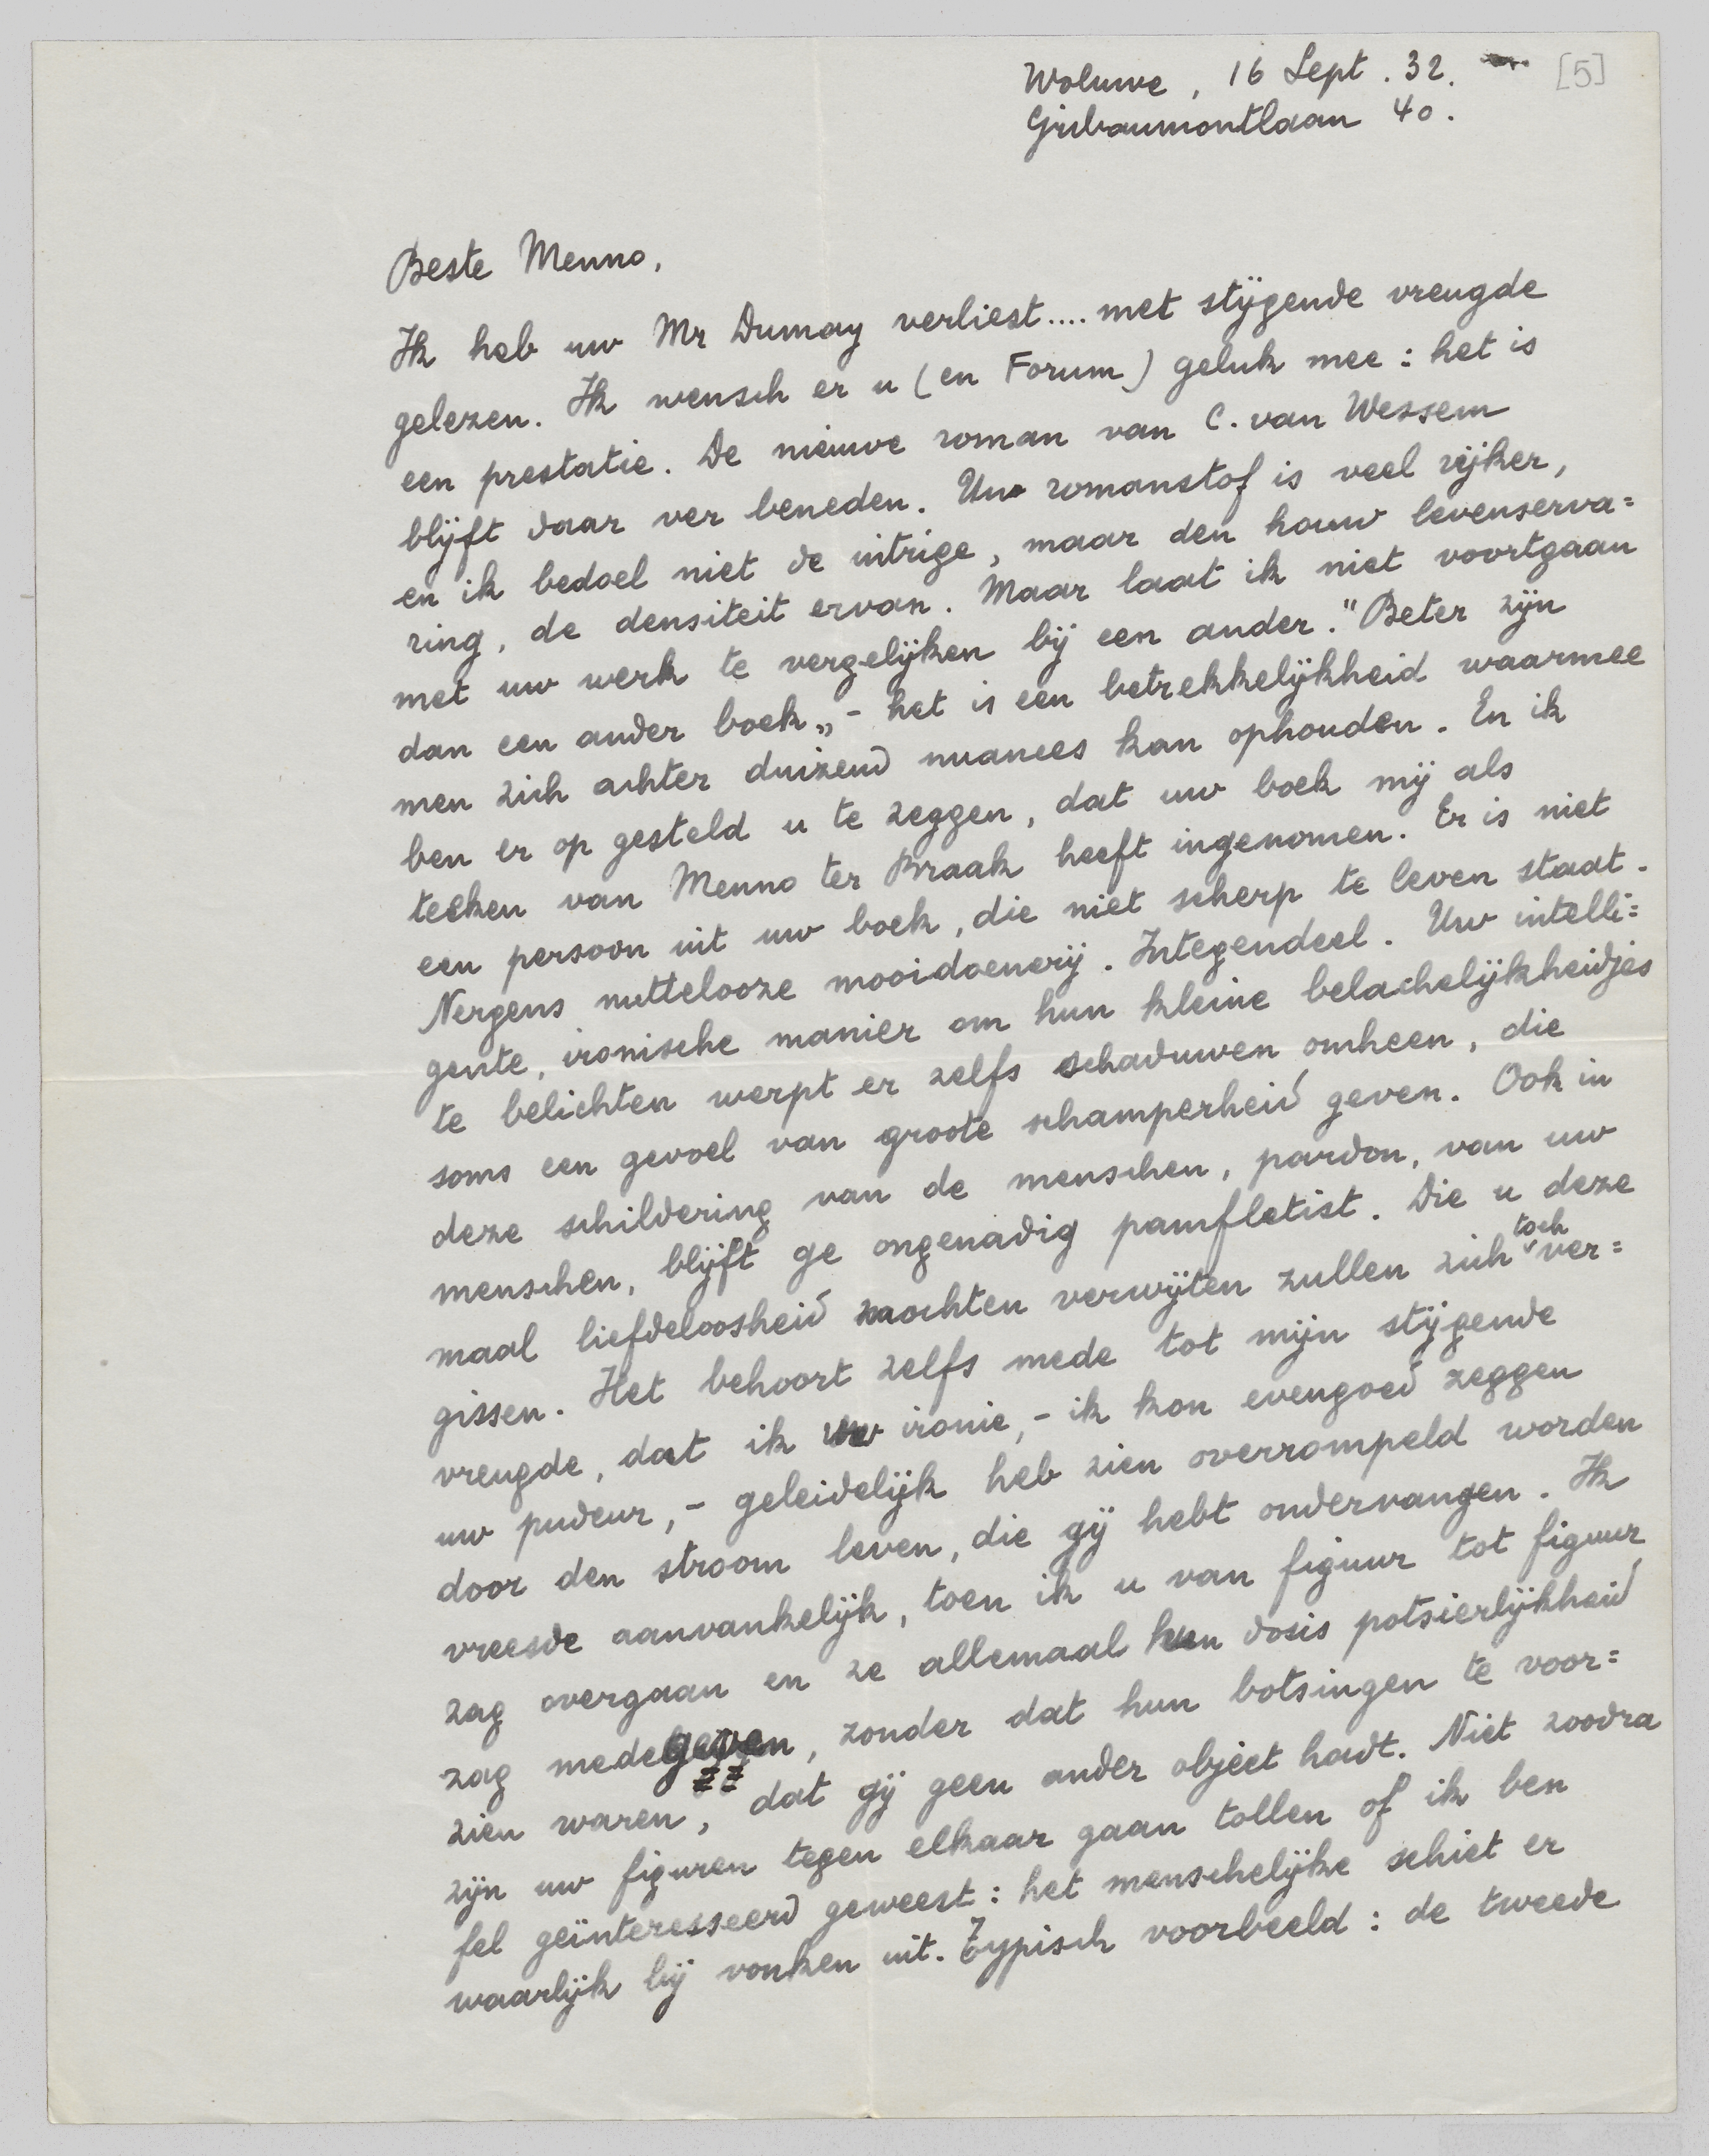 Woluwe, 16 Sept. 32. [5]
Gribaumontlaan 40.
Beste Menno,
Ik heb uw Mr Dumay verliest.... met stijgende vreugde
gelezen. Ik wensch er u (en Forum) geluk mee: het is
een prestatie. De nieuwe roman van C. van Wessem
blijft daar ver beneden. Uw romanstof is veel rijker,
en ik bedoel niet de intrige, maar den houw levenserva=
ring, de densiteit ervan. Maar laat ik niet voortgaan
met uw werk te vergelijken bij een ander. "Beter zijn
dan een ander boek„ - het is een betrekkelijkheid waarmee
men zich achter duizend nuances kan ophouden. En ik
ben er op gesteld u te zeggen, dat uw boek mij als
teeken van Menno ter Braak heeft ingenomen. Er is niet
een persoon uit uw boek, die niet scherp te leven staat.
Nergens nuttelooze mooidoenerij. Integendeel. Uw intelli=
gente, ironische manier om hun kleine belachelijkheidjes
te belichten werpt er zelfs schaduwen omheen, die
soms een gevoel van groote schamperheid geven. Ook in
deze schildering van de menschen, pardon, van uw
menschen, blijft ge ongenadig pamfletist. Die u deze
maal liefdeloosheid mochten verwijten zullen zich toch ver=
gissen. Het behoort zelfs mede tot mijn stijgende
vreugde, dat ik uw ironie, - ik kon evengoed zeggen
uw pudeur, - geleidelijk heb zien overrompeld worden
door den stroom leven, die gij hebt ondervangen. Ik
vreesde aanvankelijk, toen ik u van figuur tot figuur
zag overgaan en ze allemaal hun dosis potsierlijkheid
zag medegeven, zonder dat hun botsingen te voor=
zien waren, dat gij geen ander objeet hadt. Niet zoodra
zijn uw figuren tegen elkaar gaan tollen of ik ben
fel geïnteresseerd geweest: het menschelijke schiet er
waarlijk bij vonken uit. Typisch voorbeeld: de tweede